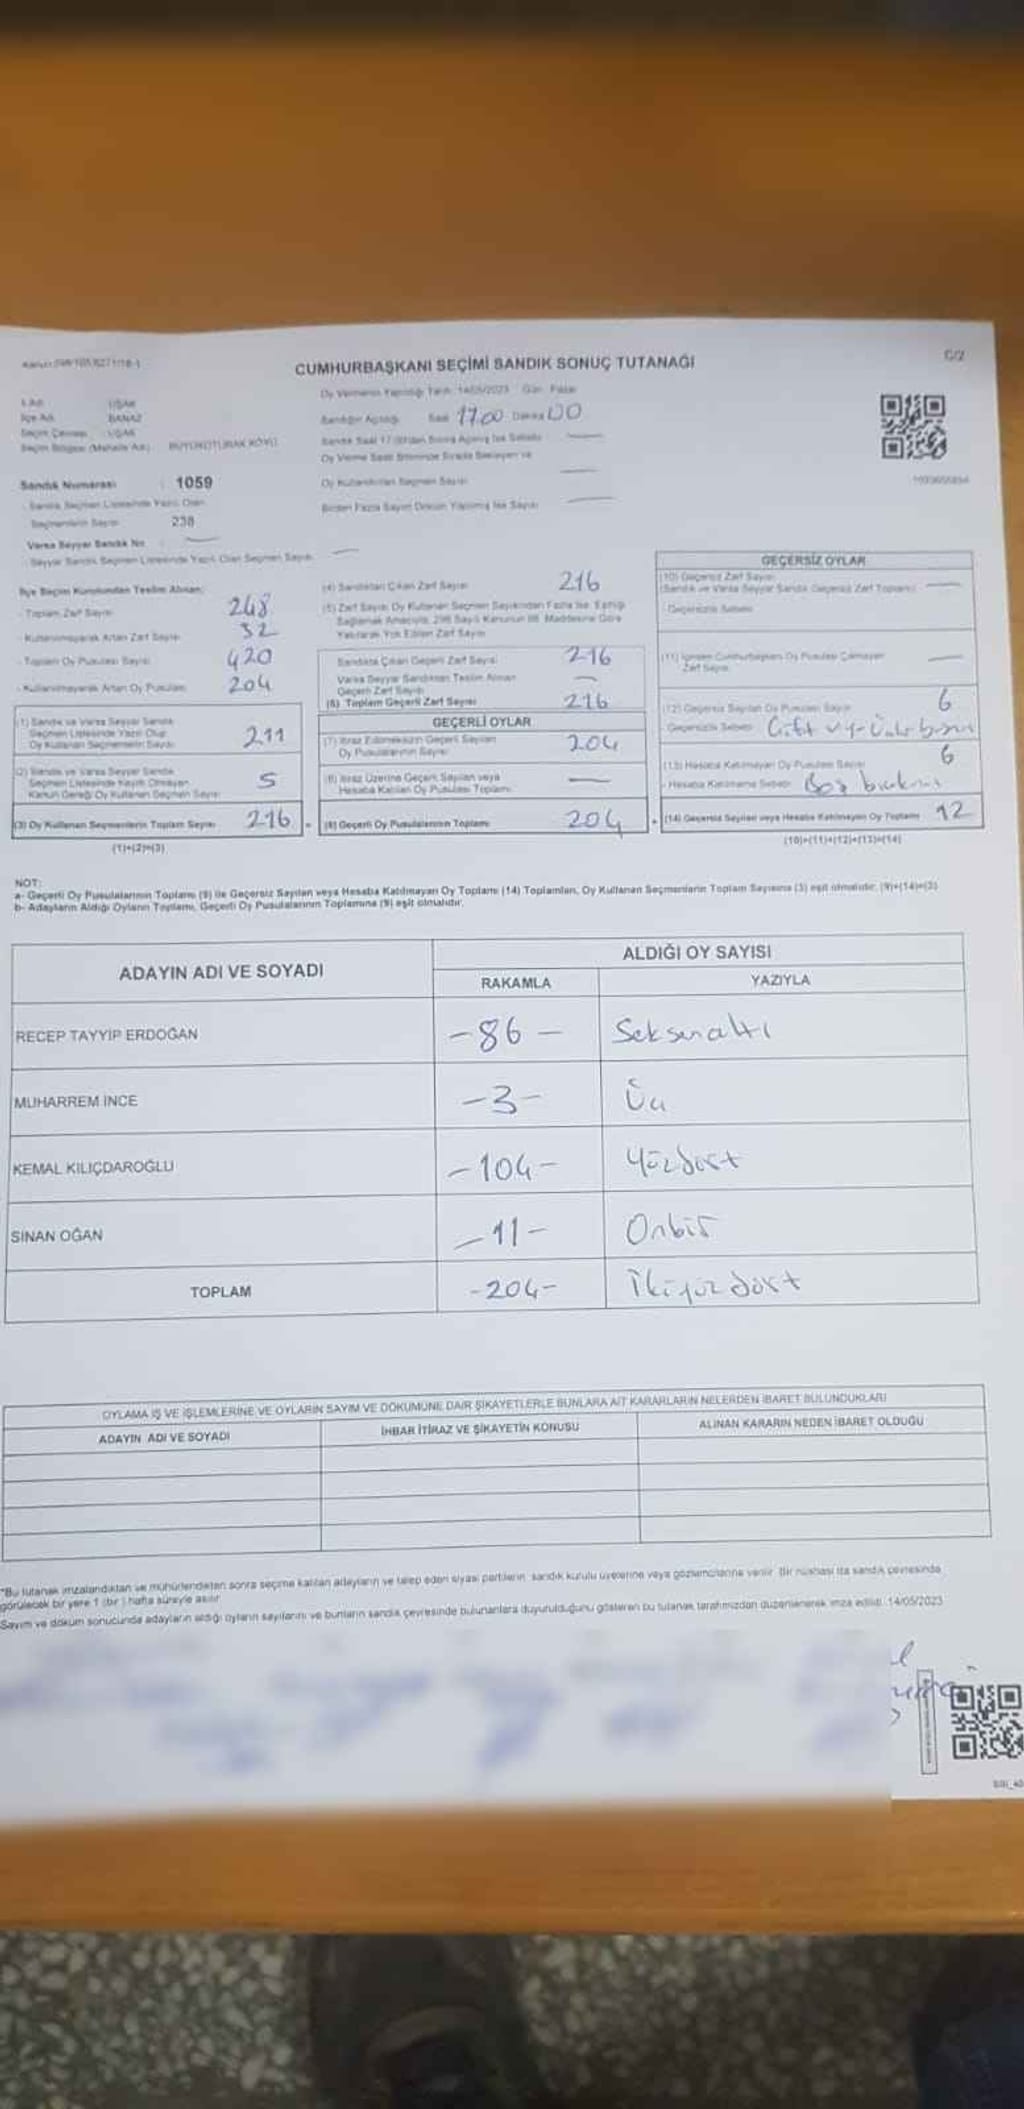 CUMHURBAŞKANI SEÇİMİ SANDIK SONUÇ TUTANAĞI
C/2
İl Adı : UŞAK
İlçe Adı : BANAZ
Seçim Çevresi : UŞAK
Seçim Bölgesi (Mahalle Adı) : BÜYÜKOTURAK KÖYÜ
Oy Vermenin Yapıldığı Tarih: 14/05/2023 Gün: Pazar
Sandığın Açıldığı Saat 17.00 Dakika 00
Oy Kullandırılan Seçmen Sayısı
Birden Fazla Sayım Döküm Yapılmış İse Sayısı
Sandık Numarası : 1059
Sandık Seçmen Listesinde Yazılı Olan
Seçmenlerin Sayısı 238
Varsa Seyyar Sandık No :
- Seyyar Sandık Seçmen Listesinde Yazılı Olan Seçmen Sayısı
İlçe Seçim Kurulundan Teslim Alınan;
- Toplam Zarf Sayısı 248
- Kullanılmayarak Artan Zarf Sayısı 32
- Toplam Oy Pusulası Sayısı 420
- Kullanılmayarak Artan Oy Pusulası 204
(1) Sandık ve Varsa Seyyar Sandık
Seçmen Listesinde Yazılı Olup
Oy Kullanan Seçmenlerin Sayısı 211
(2) Sandık ve Varsa Seyyar Sandık
Seçmen Listesinde Kayıtlı Olmayan
Kanun Gereği Oy Kullanan Seçmen Sayısı 5
(3) Oy Kullanan Seçmenlerin Toplam Sayısı 216
(1)+(2)=(3)
(4) Sandıktan Çıkan Zarf Sayısı 216
(5) Zarf Sayısı Oy Kullanan Seçmen Sayısından Fazla İse, Eşitliği
Sağlamak Amacıyla, 298 Sayılı Kanunun 98. Maddesine Göre
Yakılarak Yok Edilen Zarf Sayısı
Sandıkta Çıkan Geçerli Zarf Sayısı 216
Varsa Seyyar Sandıktan Teslim Alınan
Geçerli Zarf Sayısı
(6) Toplam Geçerli Zarf Sayısı 216
GEÇERLİ OYLAR
(7) İtiraz Edilmeksizin Geçerli Sayılan
Oy Pusulalarının Sayısı 204
(8) İtiraz Üzerine Geçerli Sayılan veya
Hesaba Katılan Oy Pusulası Toplamı
(9) Geçerli Oy Pusulalarının Toplamı 204
GEÇERSİZ OYLAR
(10) Geçersiz Zarf Sayısı
(Sandık ve Varsa Seyyar Sandık Geçersiz Zarf Toplamı)
Geçersizlik Sebebi
(11) İçinden Cumhurbaşkanı Oy Pusulası Çıkmayan
Zarf Sayısı
(12) Geçersiz Sayılan Oy Pusulası Sayısı 6
Geçersizlik Sebebi
(13) Hesaba Katılmayan Oy Pusulası Sayısı 6
Hesaba Katılmama Sebebi Boş
(14) Geçersiz Sayılan veya Hesaba Katılmayan Oy Toplamı 12
(10)+(11)+(12)+(13)=(14)
NOT:
a- Geçerli Oy Pusulalarının Toplamı (9) ile Geçersiz Sayılan veya Hesaba Katılmayan Oy Toplamı (14) Toplamları, Oy Kullanan Seçmenlerin Toplam Sayısına (3) eşit olmalıdır. (9)+(14)=(3)
b- Adayların Aldığı Oyların Toplamı, Geçerli Oy Pusulalarının Toplamına (9) eşit olmalıdır.
ADAYIN ADI VE SOYADI
ALDIĞI OY SAYISI
RAKAMLA YAZIYLA
RECEP TAYYİP ERDOĞAN -86- Seksenaltı
MUHARREM İNCE -3- Üç
KEMAL KILIÇDAROĞLU -104- Yüzdört
SİNAN OĞAN -11- Onbir
TOPLAM -204- İkiyüzdört
OYLAMA İŞ VE İŞLEMLERİNE VE OYLARIN SAYIM VE DÖKÜMÜNE DAİR ŞİKAYETLERLE BUNLARA AİT KARARLARIN NELERDEN İBARET BULUNDUKLARI
ADAYIN ADI VE SOYADI İHBAR İTİRAZ VE ŞİKAYETİN KONUSU ALINAN KARARIN NEDEN İBARET OLDUĞU
*Bu tutanak imzalandıktan ve mühürlendikten sonra seçime katılan adayların ve talep eden siyasi partilerin sandık kurulu üyelerine veya gözlemcilerine verilir. Bir nüshası da sandık çevresinde
görülecek bir yere 1 (bir) hafta süreyle asılır.
Sayım ve döküm sonucunda adayların aldığı oyların sayılarını ve bunların sandık çevresinde bulunanlara duyurulduğunu gösteren bu tutanak tarafımızdan düzenlenerek imza edildi. 14/05/2023